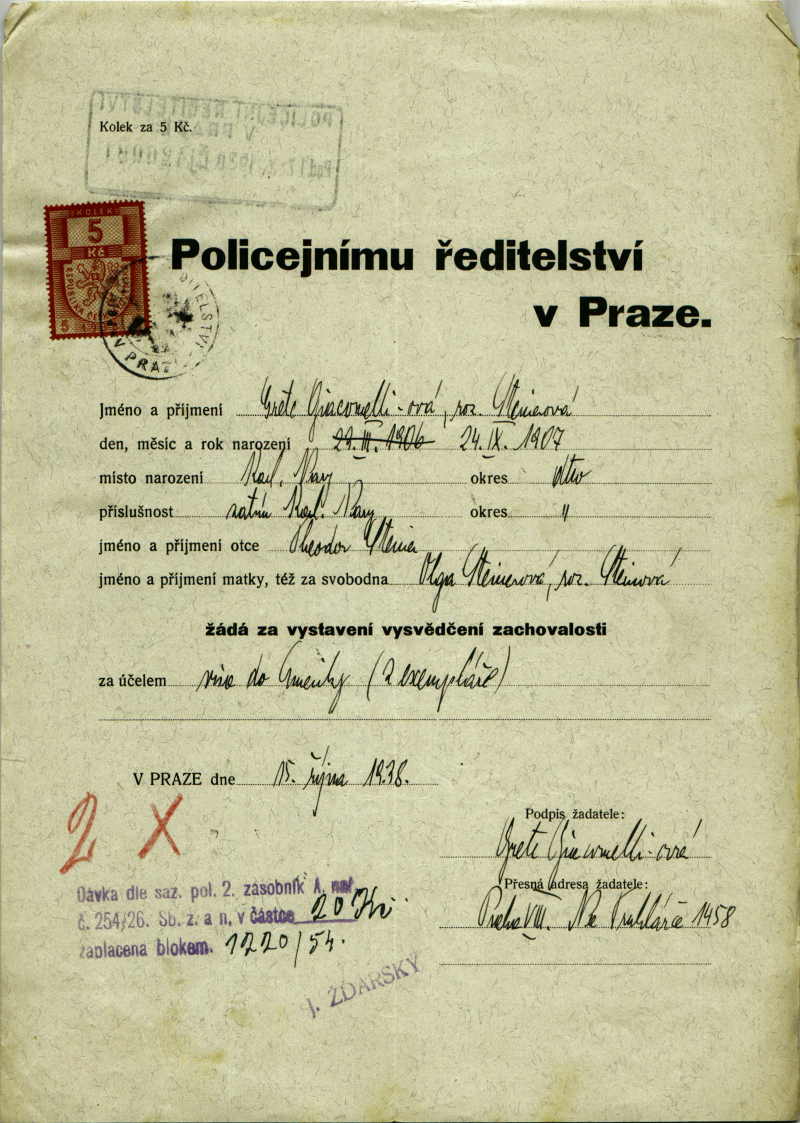 POLICEJNÍ ŘEDITELSTVÍ
V PRAZE
Kolek za 5 Kč.
KOLEK
5
Kč
Policejnímu ředitelství
v Praze.
V PRAZE
Jméno a příjmení Grete Giacomelli-ová, roz. Steinerová
den, měsíc a rok narození 29. III. 1906 24. IX. 1907
místo narození Karl. Vary okres ttv
příslušnost Karl. Vary okres "
jméno a příjmení otce Theodor Steiner
jméno a příjmení matky, též za svobodna Olga Steinerová, roz. Steinová
žádá za vystavení vysvědčení zachovalosti
za účelem visa do Ameriky (2 exempláře)
V PRAZE dne 15. října 1938.
2 X
Podpis žadatele:
Grete Giacomelli-ová
Přesná adresa žadatele:
Praha VIII. Na Truhlářce 1458
Dávka dle saz. pol. 2. zásobník A, nař.
č. 254/26. Sb. z. a n. v částce 20 Kč
zaplacena blokem. 1220/54.
J. ŽĎÁRSKÝ